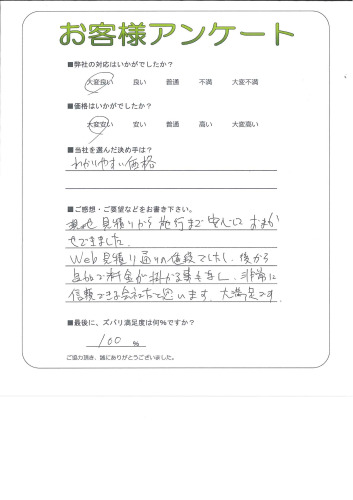 お客様アンケート
■弊社の対応はいかがでしたか?
大変良い 良い 普通 不満 大変不満
■価格はいかがでしたか?
大変安い 安い 普通 高い 大変高い
■当社を選んだ決め手は?
わかりやすい価格
■ご感想・ご要望などをお書き下さい。
現地見積りから施行まで安心しておまか
せできました。
Web見積り通りの値段でしたし、後から
追加で料金が掛かる事もなし、非常に
信頼できる会社だと思います。大満足です。
■最後に、ズバリ満足度は何%ですか?
100 %
ご協力頂き、誠にありがとうございました。